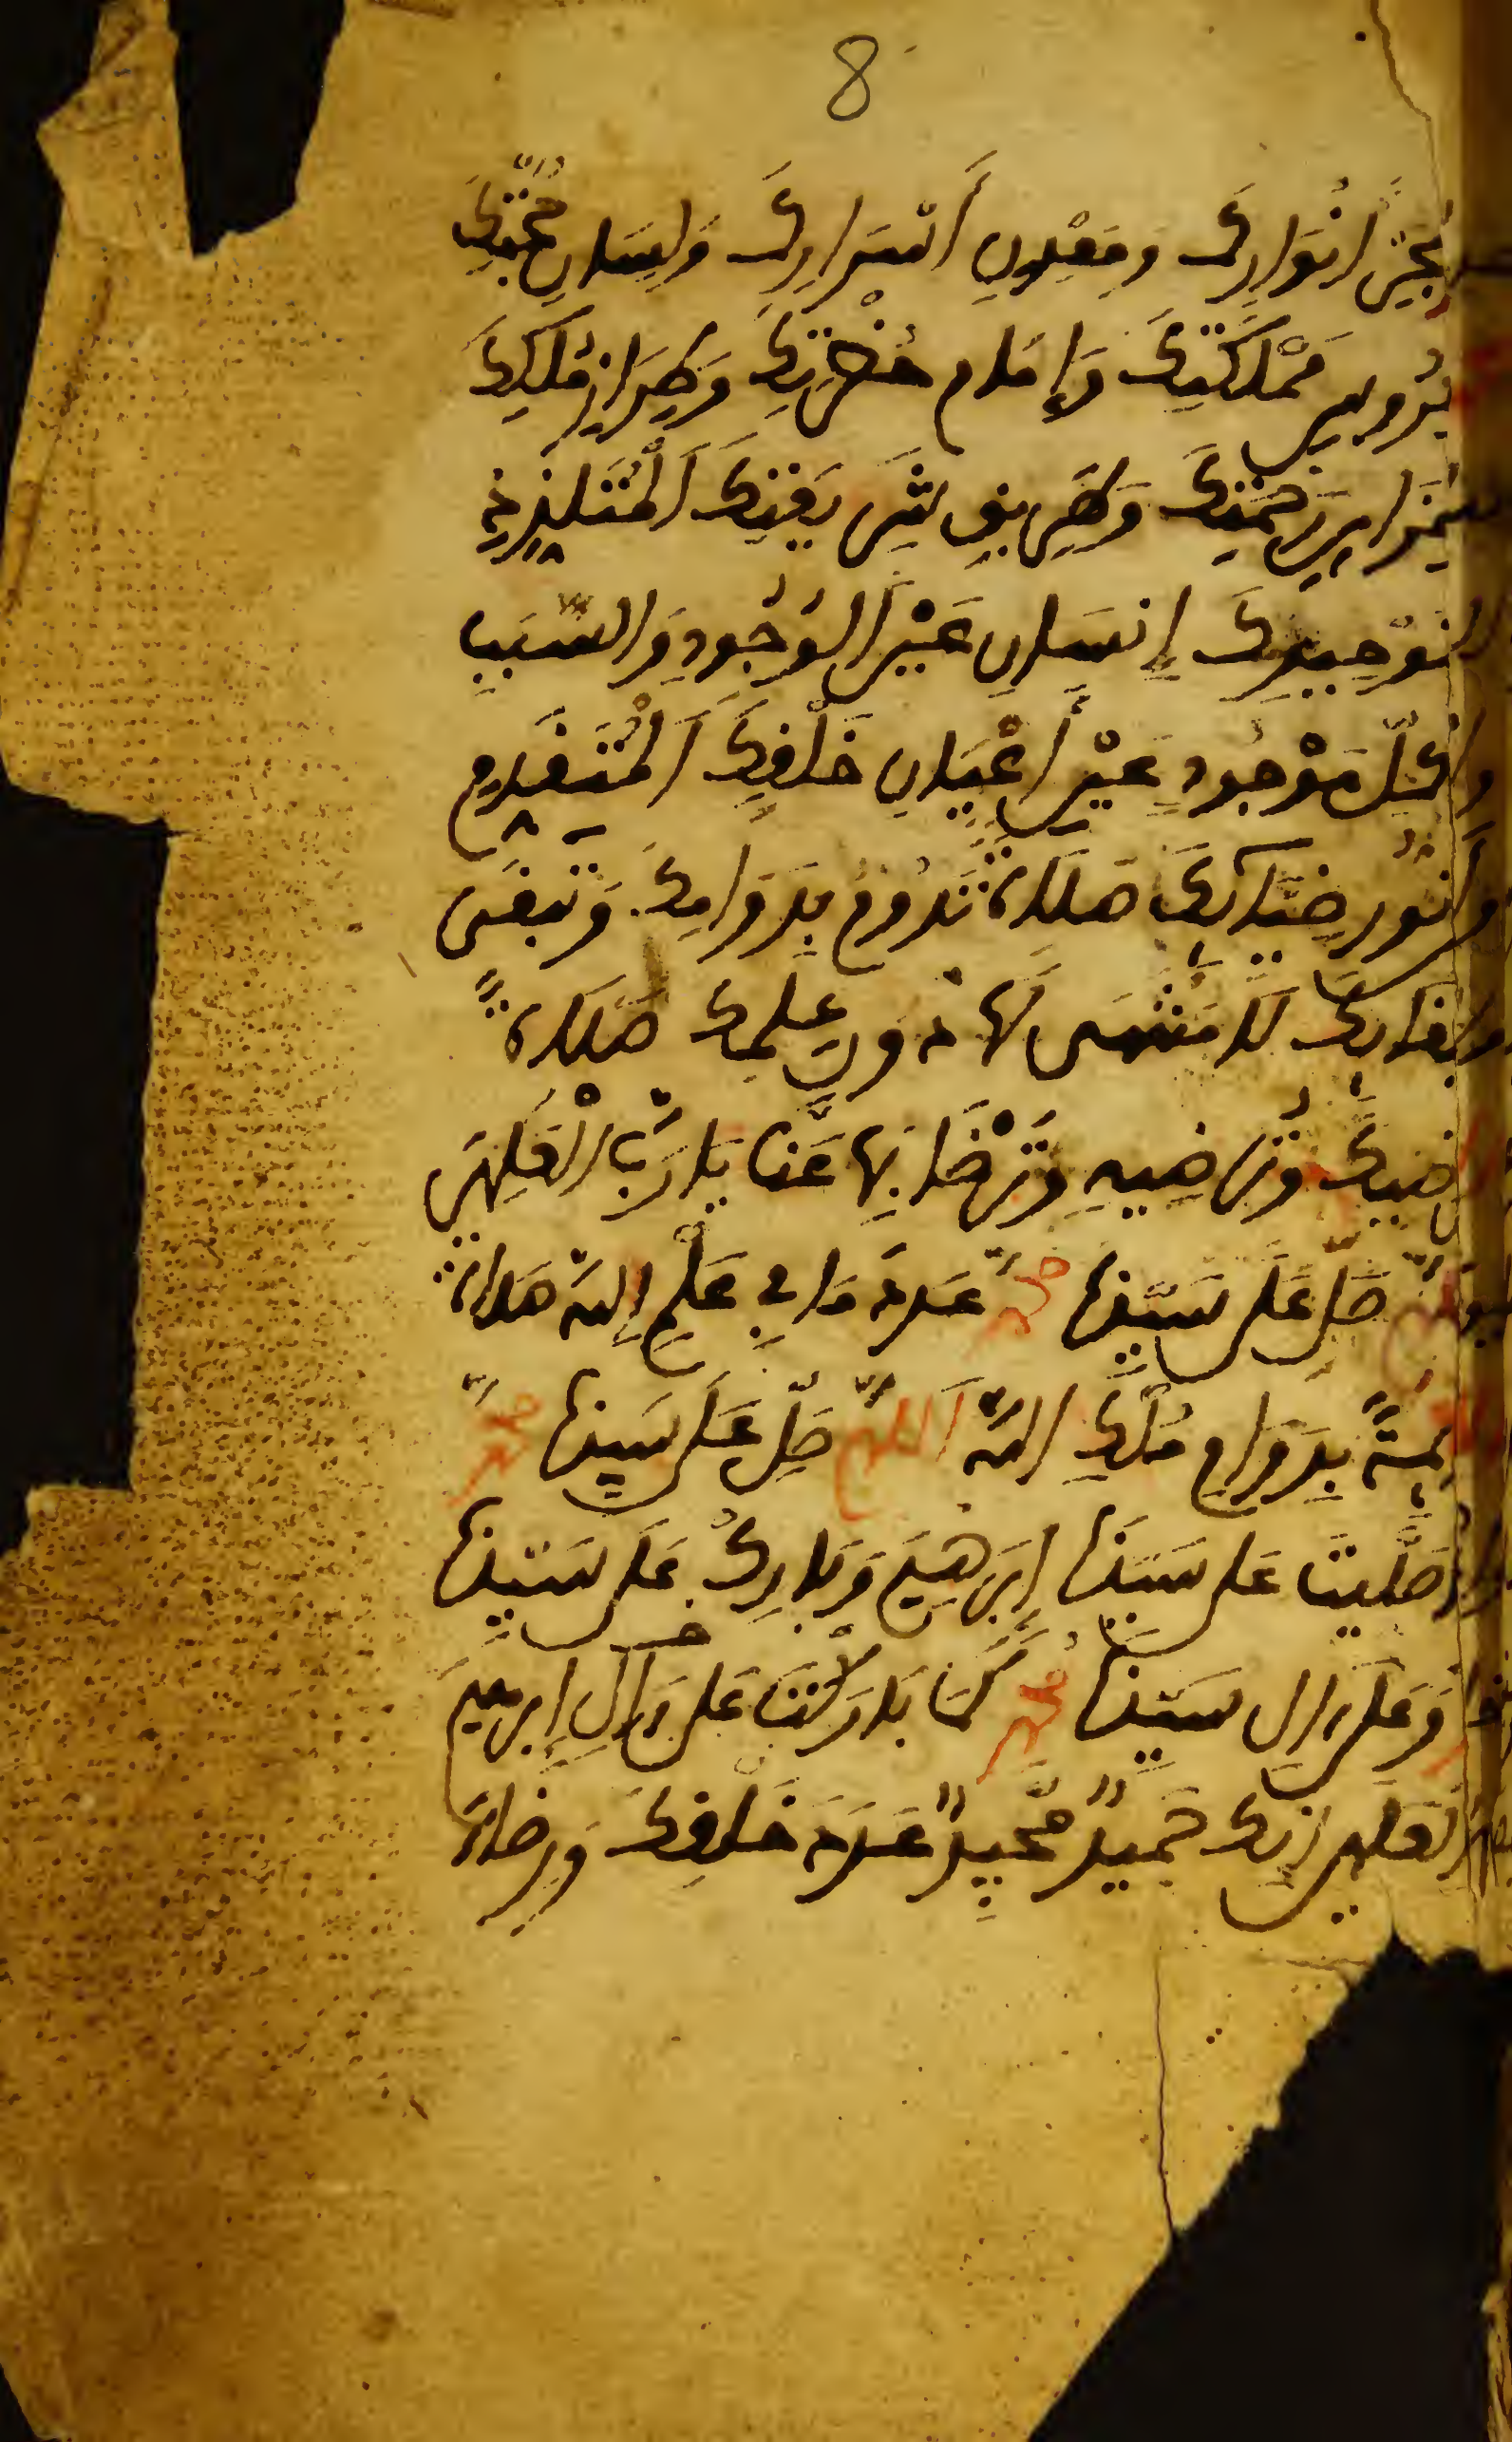 8
بحر أنوارك ومعدن أسرارك ولسان حجتك
عروس مملكتك وإمام حضرتك وطراز ملكك
خزاين رحمتك وطريق شريعتك المتلذذ
بتوحيدك إنسان عين الوجود والسبب
في كل موجود عين أعيان خلقك المتقدم
من نور ضيآئك صلاة تدوم بدوامك وتبقى
ببقائك لا منتهى لها دون علمك صلاة
ترضيك وترضيه وترضا بها عنا يا رب العلمين
اللهم صل على سيدنا محمد عدد ما في علم الله صلاة
دايمة بدوام ملك الله اللهم صل على سيدنا محمد
كما صليت على سيدنا إبرهيم وبارك على سيدنا
محمد وعلى ءال سيدنا محمد كما باركت على ءال إبرهيم
في العلمين إنك حميد مجيد عدد خلقك ورضاء